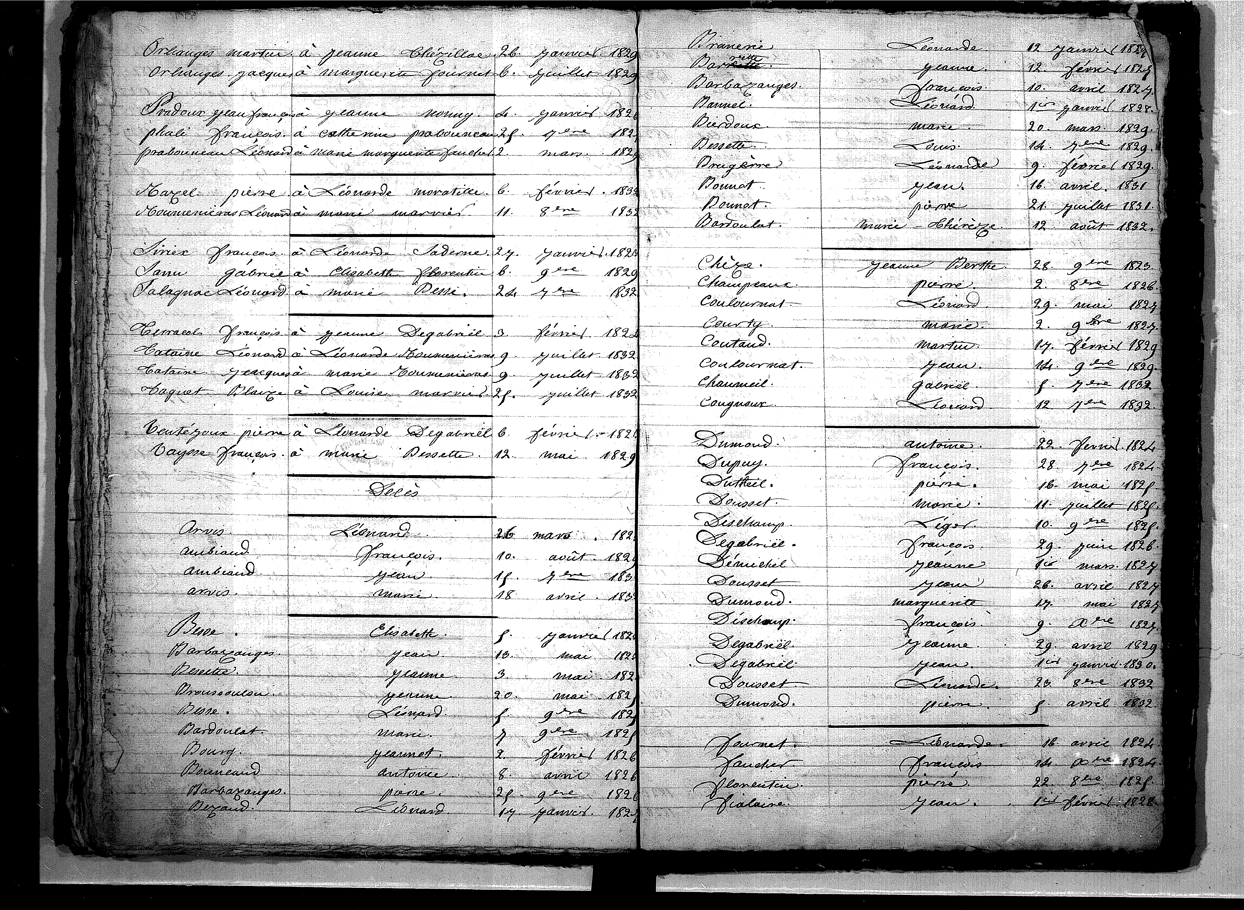 Orliauges martin à jeanne Chévillac 26 janvier 1829
Orliauges jacques à marguerite fournet 6. juillet 1829
Pradoux jean françois à jeanne monny. 4. janvier 182
phali françois à catherine prabouneau 25 7ère 182
prabouneau Léonard à marie marguerite faucher 2. mars. 182
Mazel pierre à Léonarde moratille. 6. février. 1832
Noumeniéras Léonard à marie marvier 11. 8ère 1832
Sirieix françois à Léonarde Saderne 27. janvier 182
Sanu gabriel à Elisabeth florentin 6. 9ère 1829
Salagnac Léonard à marie Besse. 24 7ère 1832
Terracol françois à jeanne Degabriel 3. février 182
Tataine Léonard à Léonarde Noumeniéras 9 juillet 1832
Tataine jacques à marie Noumeniéras 9 juillet 1832
Taguet Blaize à Louise marvier 25. juillet 1832
Teutézoux pierre à Léonarde Degabriel 6 février 182
Taysse françois à marie Bessette. 12. mai 1829
Décès
Arvis. Léonard 26 mars. 182
ambiaud françois. 10. août. 182
ambiaud jean 15 7ère 183
arvis. marie 18 avril. 183
Besse. Elisabeth. 5. janvier 182
Barbazanges. jean 13. mai 182
Bessette. jeanne 3. mai 182
Broussoulou jeanne 20. mai 182
Besse. Léonard. 5. 9ère 1825
Bardoulat. marie. 7 9ère 1825
Bourg. jeannot. 2 février 1826
Bouneaud antoine 8. avril 1826
Barbazanges. pierre. 25 9ère 1826
Bezaud. Léonard. 17 janvier. 182
Branerie Léonarde 12 janvier 1827
Bar jeanne. 12. février 182
Barbazanges. françois 10. avril 1827
Bannel Léonard 1er janvier 1828.
Bierdoux. marie. 20. mars. 1829.
Bessette. Louis. 14. 7ère 1829.
Brugèrre Léonarde 9. février 1829.
Bounet. jean. 16 avril. 1831
Bounet. pierre 21. juillet 1831.
Bardoulat. marie-thérèze 12. août 1832.
Chèze. jeanne Berthe 28. 9ère 1823.
Champeaux pierre 2. 8ère 1826.
Coulournat Léonard 29. mai 1827
Courty. marie. 2. 9bre 1827.
Coutaud. martin 17. février 1829
Coulournat. jean. 14. 9ère 1829.
Chaumeil. gabriel 5. 7ère 1832.
Cougnoux Léonard 12. 7ère 1832.
Dumond. antoine. 22. février 1824
Dupuy. françois. 28. 7ère 1824.
Dutheil. pierre. 16. mai 1825
Dousset marie. 11. juillet 1825.
Déschamp. Léger 10. 9ère 1825.
Degabriel. françois. 29. juin 1826.
Démichel jeanne 1er mars. 1827
Dousset jean 26. avril 1827
Dumond. marguerite 17. mai 1827
Déschamp. françois. 9. Xère 1827.
Degabriel jeanne 29. avril 1829
Degabriel jean 1er janvier 1830.
Dousset Léonarde. 23. 8ère 1832
Dumond. pierre. 5 avril 1832
fournet. Léonarde. 16 avril 1824.
faucher françois 14. Xère 1824.
florentin pierre 22. 8ère 1825.
fialaire. jean. 1er février 1828